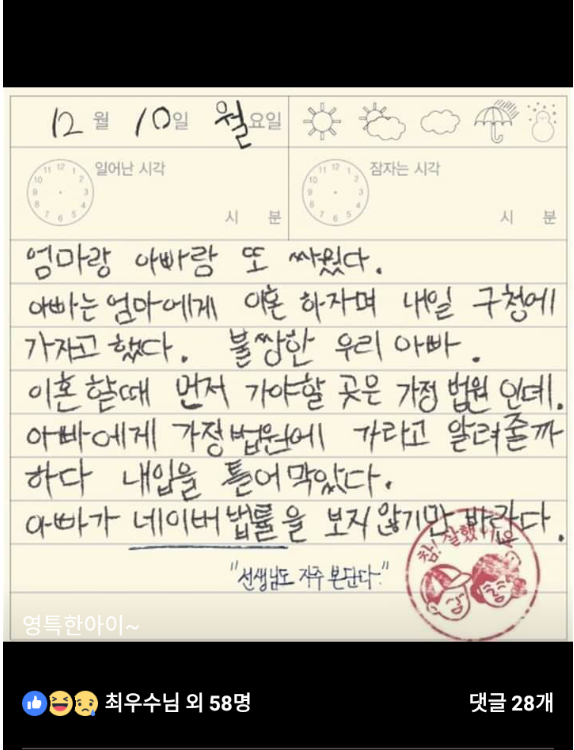 12월 10일 월요일
일어난 시각
잠자는 시각
11 12 1
10 2
9 3
8 4
7 6 5
11 12 1
10 2
9 3
8 4
7 6 5
시 분
시 분
엄마랑 아빠랑 또 싸웠다.
아빠는 엄마에게 이혼 하자며 내일 구청에
가자고 했다. 불쌍한 우리 아빠.
이혼 할때 먼저 가야할 곳은 가정 법원 인데.
아빠에게 가정법원에 가라고 알려줄까
하다 내입을 틀어막았다.
아빠가 네이버 법률을 보지 않기만 바란다.
참! 잘했어요
"선생님도 자주 본단다."
영특한아이~
최우수님 외 58명
댓글 28개